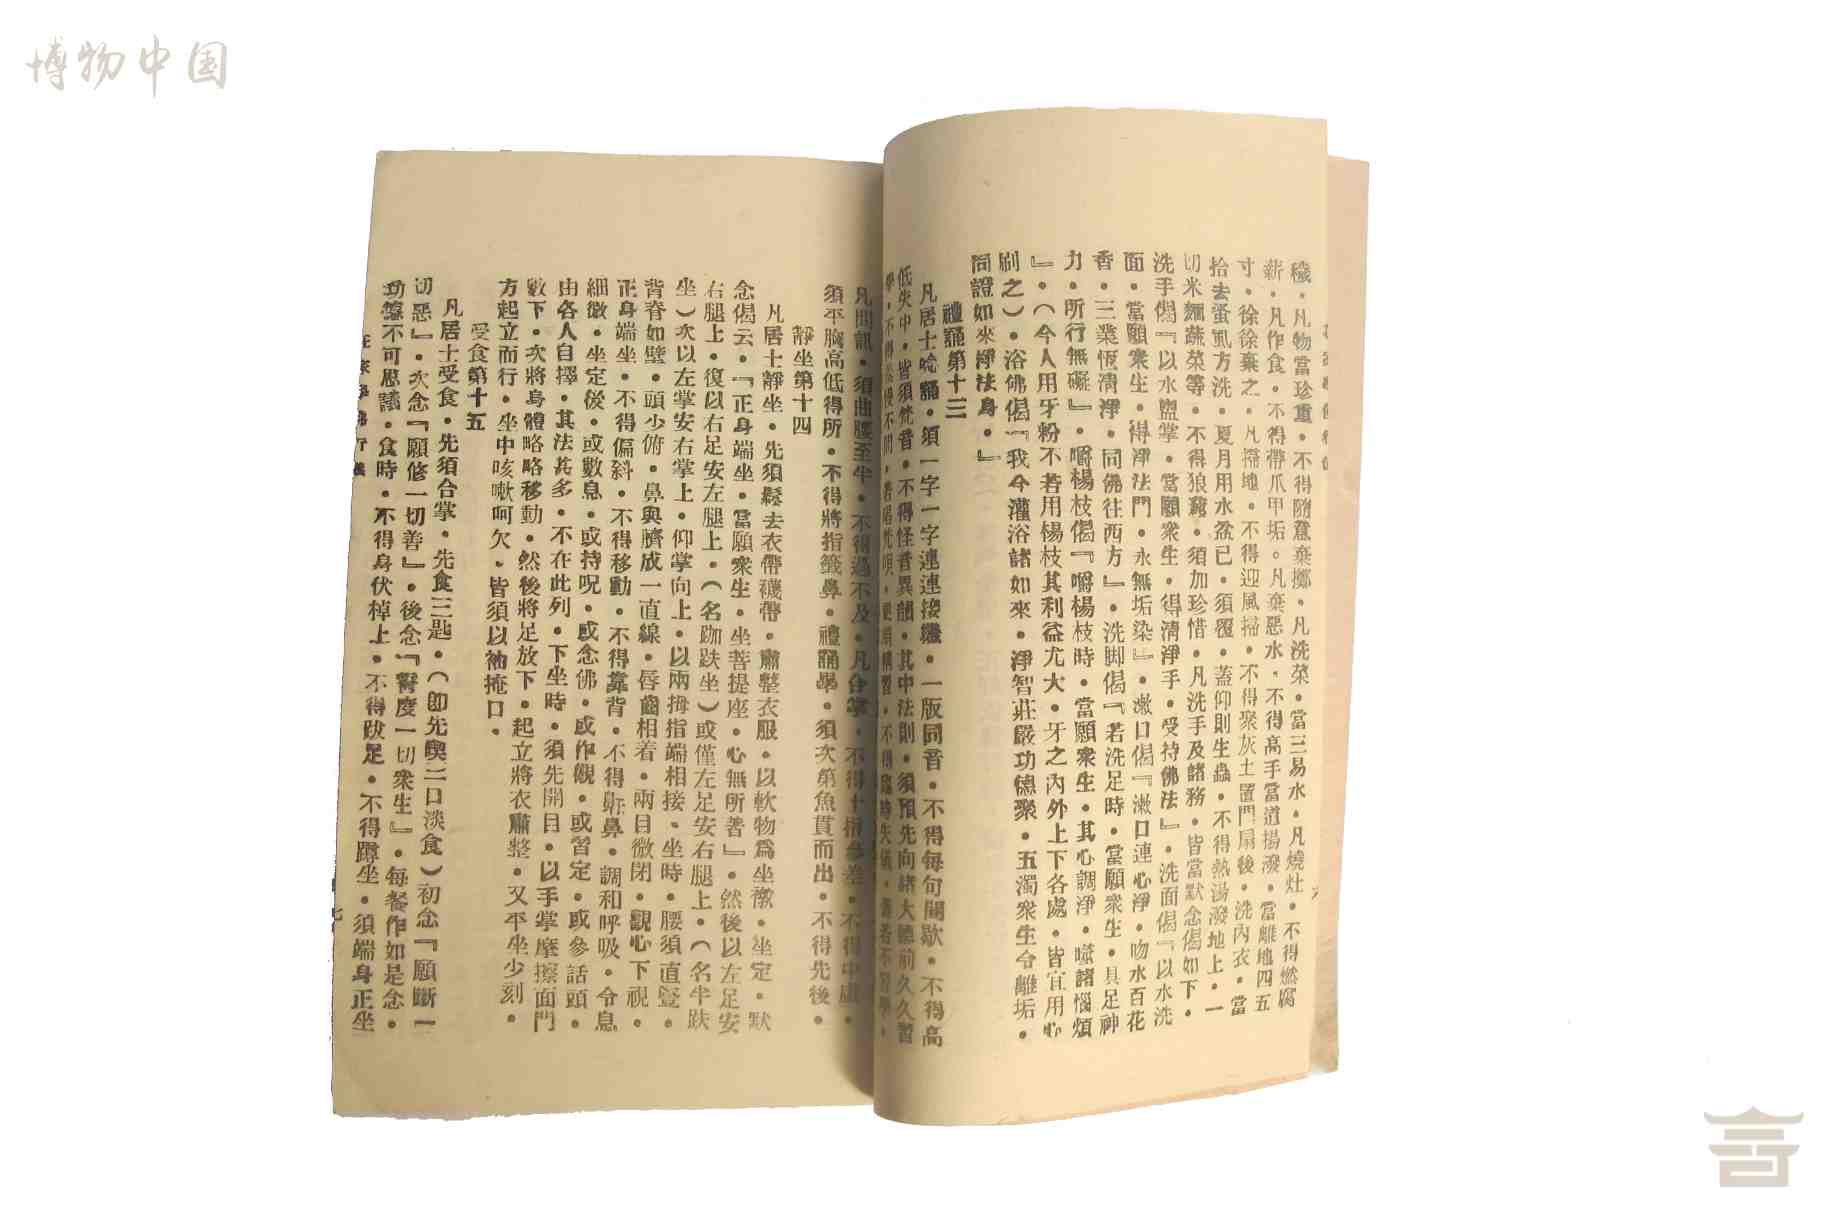 博物中国
穢・凡物當珍重・不得隨意棄擲・凡洗菜・當三易水・凡燒灶・不得燃腐
薪・凡作食・不得帶爪甲垢。凡棄惡水・不得高手當道揚潑・當離地四五
寸・徐徐棄之・凡掃地・不得迎風掃・不得聚灰土置門扇後・洗內衣・當
拾去蚤虱方洗・夏月用水盆已・須覆・蓋仰則生蟲・不得熱湯潑地上・一
切米麵蔬菜等・不得狼藉・須加珍惜・凡洗手及諸務・皆當默念偈如下・
洗手偈『以水盥掌・當願衆生・得清淨手・受持佛法』・洗面偈『以水洗
面・當願衆生・得淨法門・永無垢染』・漱口偈『漱口連心淨・吻水百花
香・三業恆清淨・同佛往西方』・洗脚偈『若洗足時・當願衆生・具足神
力・所行無礙』・嚼楊枝偈『嚼楊枝時・當願衆生・其心調淨・噬諸惱煩
』・(今人用牙粉不若用楊枝其利益尤大・牙之內外上下各處・皆宜用心
刷之)・浴佛偈『我今灌浴諸如來・淨智莊嚴功德聚・五濁衆生令離垢・
同證如來淨法身・』
禮誦第十三
凡居士唸誦・須一字一字連連接繼・一版同音・不得每句間歇・不得高
低失中・皆須梵音・不得怪音異韻・其中法則・須預先向諸大德前久久習
凡問訊・須曲腰至半・不得過不及・凡合掌・不得十指參差・不得中虛・
須平胸高低得所・不得將指籤鼻・禮誦畢・須次第魚貫而出・不得先後・
靜坐第十四
凡居士靜坐・先須鬆去衣帶襪帶・肅整衣服・以軟物爲坐褥・坐定・默
念偈云・『正身端坐・當願衆生・坐菩提座・心無所著』・然後以左足安
右腿上・復以右足安左腿上・(名跏趺坐)或僅左足安右腿上・(名半趺
坐)次以左掌安右掌上・仰掌向上・以兩拇指端相接、坐時・腰須直豎・
背脊如壁・頭少俯・鼻與臍成一直線・唇齒相着・兩目微閉・觀心下視・
正身端坐・不得偏斜・不得移動・不得靠背・不得鼾鼻・調和呼吸・令息
細微・坐定後・或數息・或持呪・或念佛・或作觀・或習定・或參話頭・
由各人自擇・其法甚多・不在此列・下坐時・須先開目・以手掌摩擦面門
數下・次將身體略略移動・然後將足放下・起立將衣肅整・又平坐少刻・
方起立而行・坐中咳嗽呵欠・皆須以袖掩口・
受食第十五
凡居士受食・先須合掌・先食三匙・(卽先喫三口淡食)初念『願斷一
切惡』・次念『願修一切善』・後念『誓度一切衆生』・每餐作如是念・
功德不可思議・食時・不得身伏棹上・不得跋足・不得蹲坐・須端身正坐